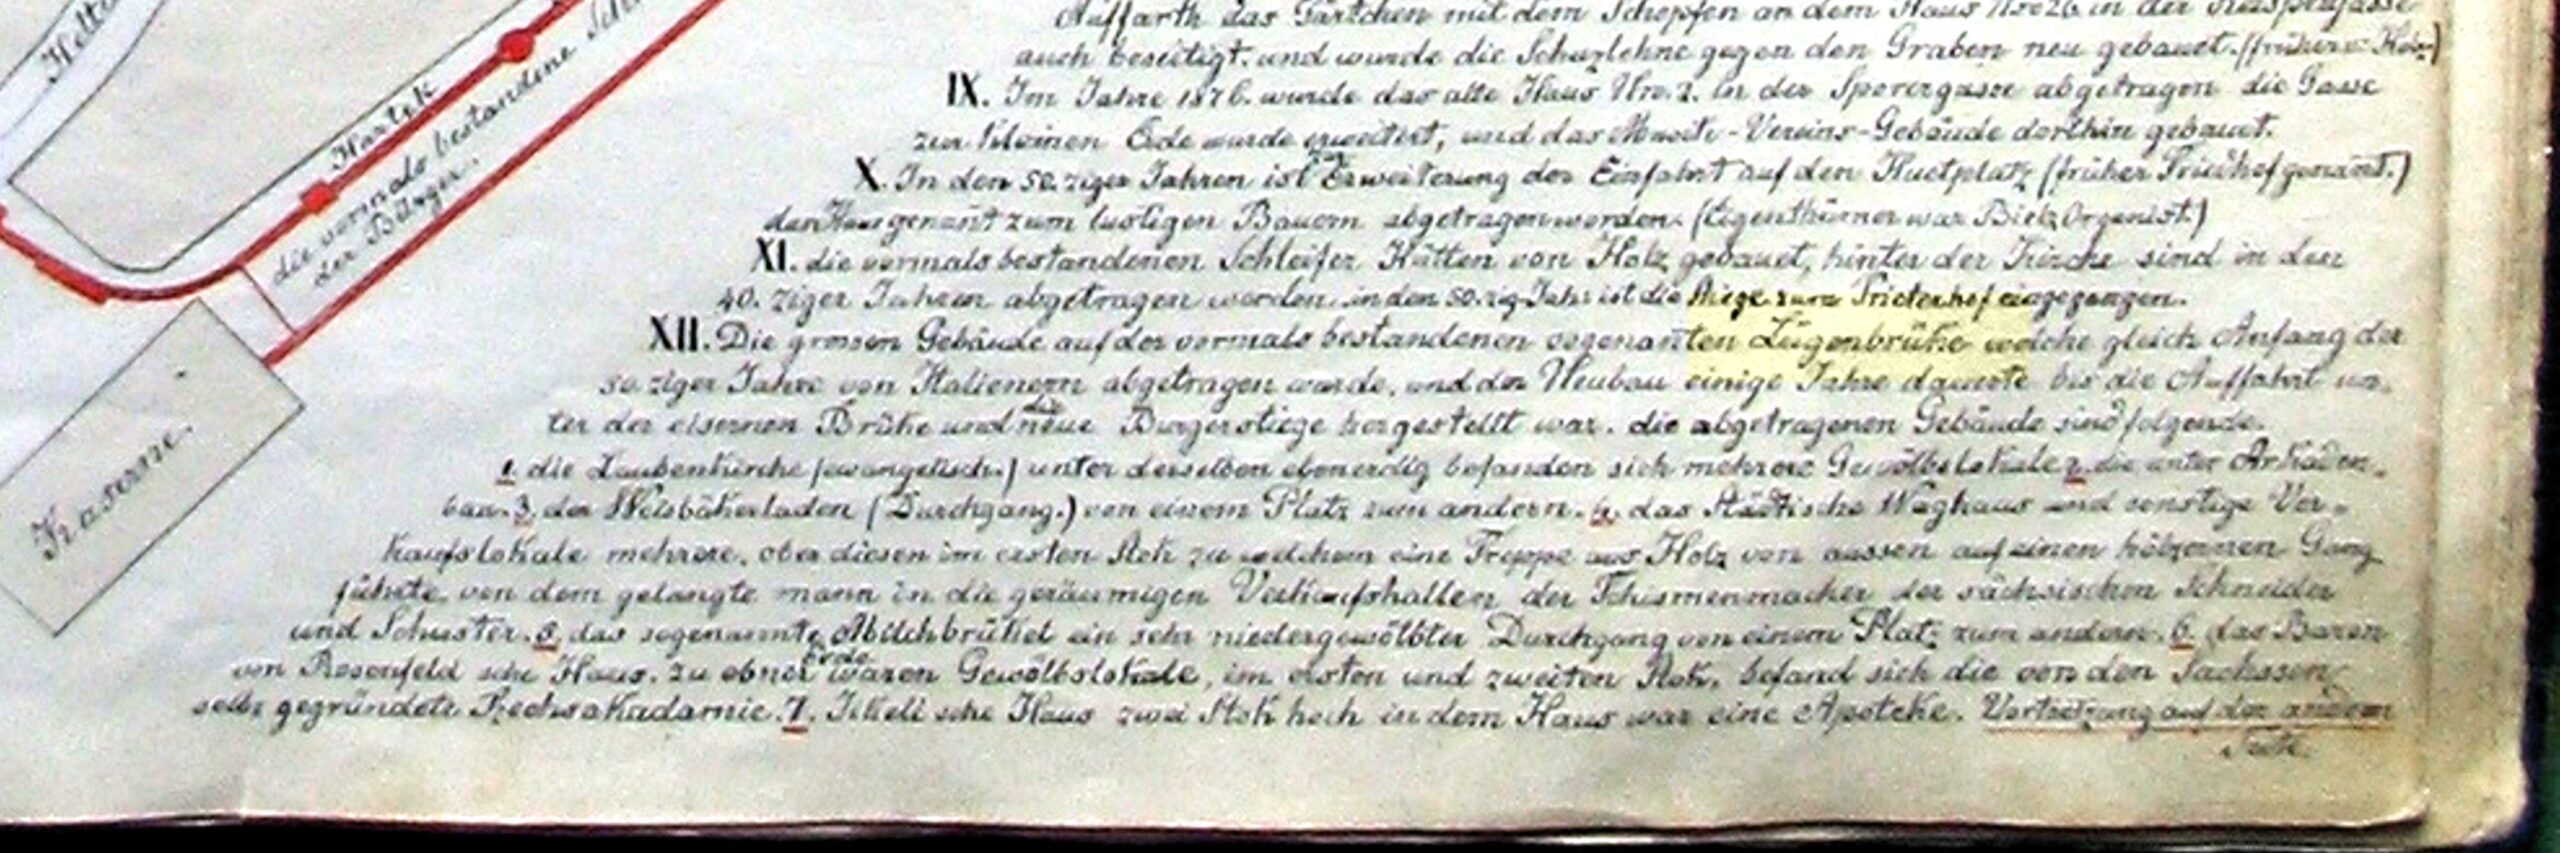 Helta
Hartek
die vormals bestandene
der Bürger.
Kaserne.
Auffarth das Gärtchen mit dem Schopfen an dem Haus Nro 26 in der
auch beseitigt. und wurde die Schuzlehne gegen den Graben neu gebauet. (früher: Holz)
IX. Im Jahre 1876. wurde das alte Haus Nro. 2. in der Sporergasse abgetragen die Gasse
zur Kleinen Erde wurde erweitert, und das Musik-Vereins-Gebäude dorthin gebaut.
X. In den 50. ziger Jahren ist Erweiterung der Einfahrt auf den Huetplatz (früher Friedhof genant.)
das Haus genant zum lustigen Bauern abgetragen worden. (Eigenthümer war Bielz Organist.)
XI. die vormals bestandenen Schleifer Hütten von Holz gebauet, hinter der Kirche sind in den
40. ziger Jahren abgetragen worden. in den 50. zig Jahr ist die Stiege zum eingegangen.
XII. Die grossen Gebäude auf der vormals bestandenen sogenanten Lügenbrüke welche gleich Anfang der
50. ziger Jahre von Italienern abgetragen wurde, und der Neubau einige Jahre dauerte bis die Auffahrt un-
ter der eisernen Brüke und die neue Burgerstiege hergestellt war. die abgetragenen Gebäude sind folgende.
1. die Laubenkirche (evangelisch.) unter derselben ebenerdig befanden sich mehrere Gewölbslokale 2. die unter Arkaden-
bau. 3. der Weisbäkerladen (Durchgang.) von einem Platz zum andern. 4. das Städtische Waghaus und sonstige Ver-
kaufslokale mehrere. ober diesen im ersten Stok zu welchem eine Treppe aus Holz von aussen auf einen hölzernen Gang
führte, von dem gelangte mann in die geräumigen Verkaufshallen der Tschismenmacher der sächsischen Schneider
und Schuster. 5. das sogenannte Milchbrükel ein sehr niedergewölbter Durchgang von einem Platz zum andern. 6. das Baron
von Rosenfeld sche Haus. zu ebner Erde waren Gewölbslokale, im ersten und zweiten Stok. befand sich die von den Sachssen
selbs gegründete Rechsakadamie. 7. sche Haus zwei Stok hoch in dem Haus war eine Apoteke. Vortsetzung auf der andern
Seite.